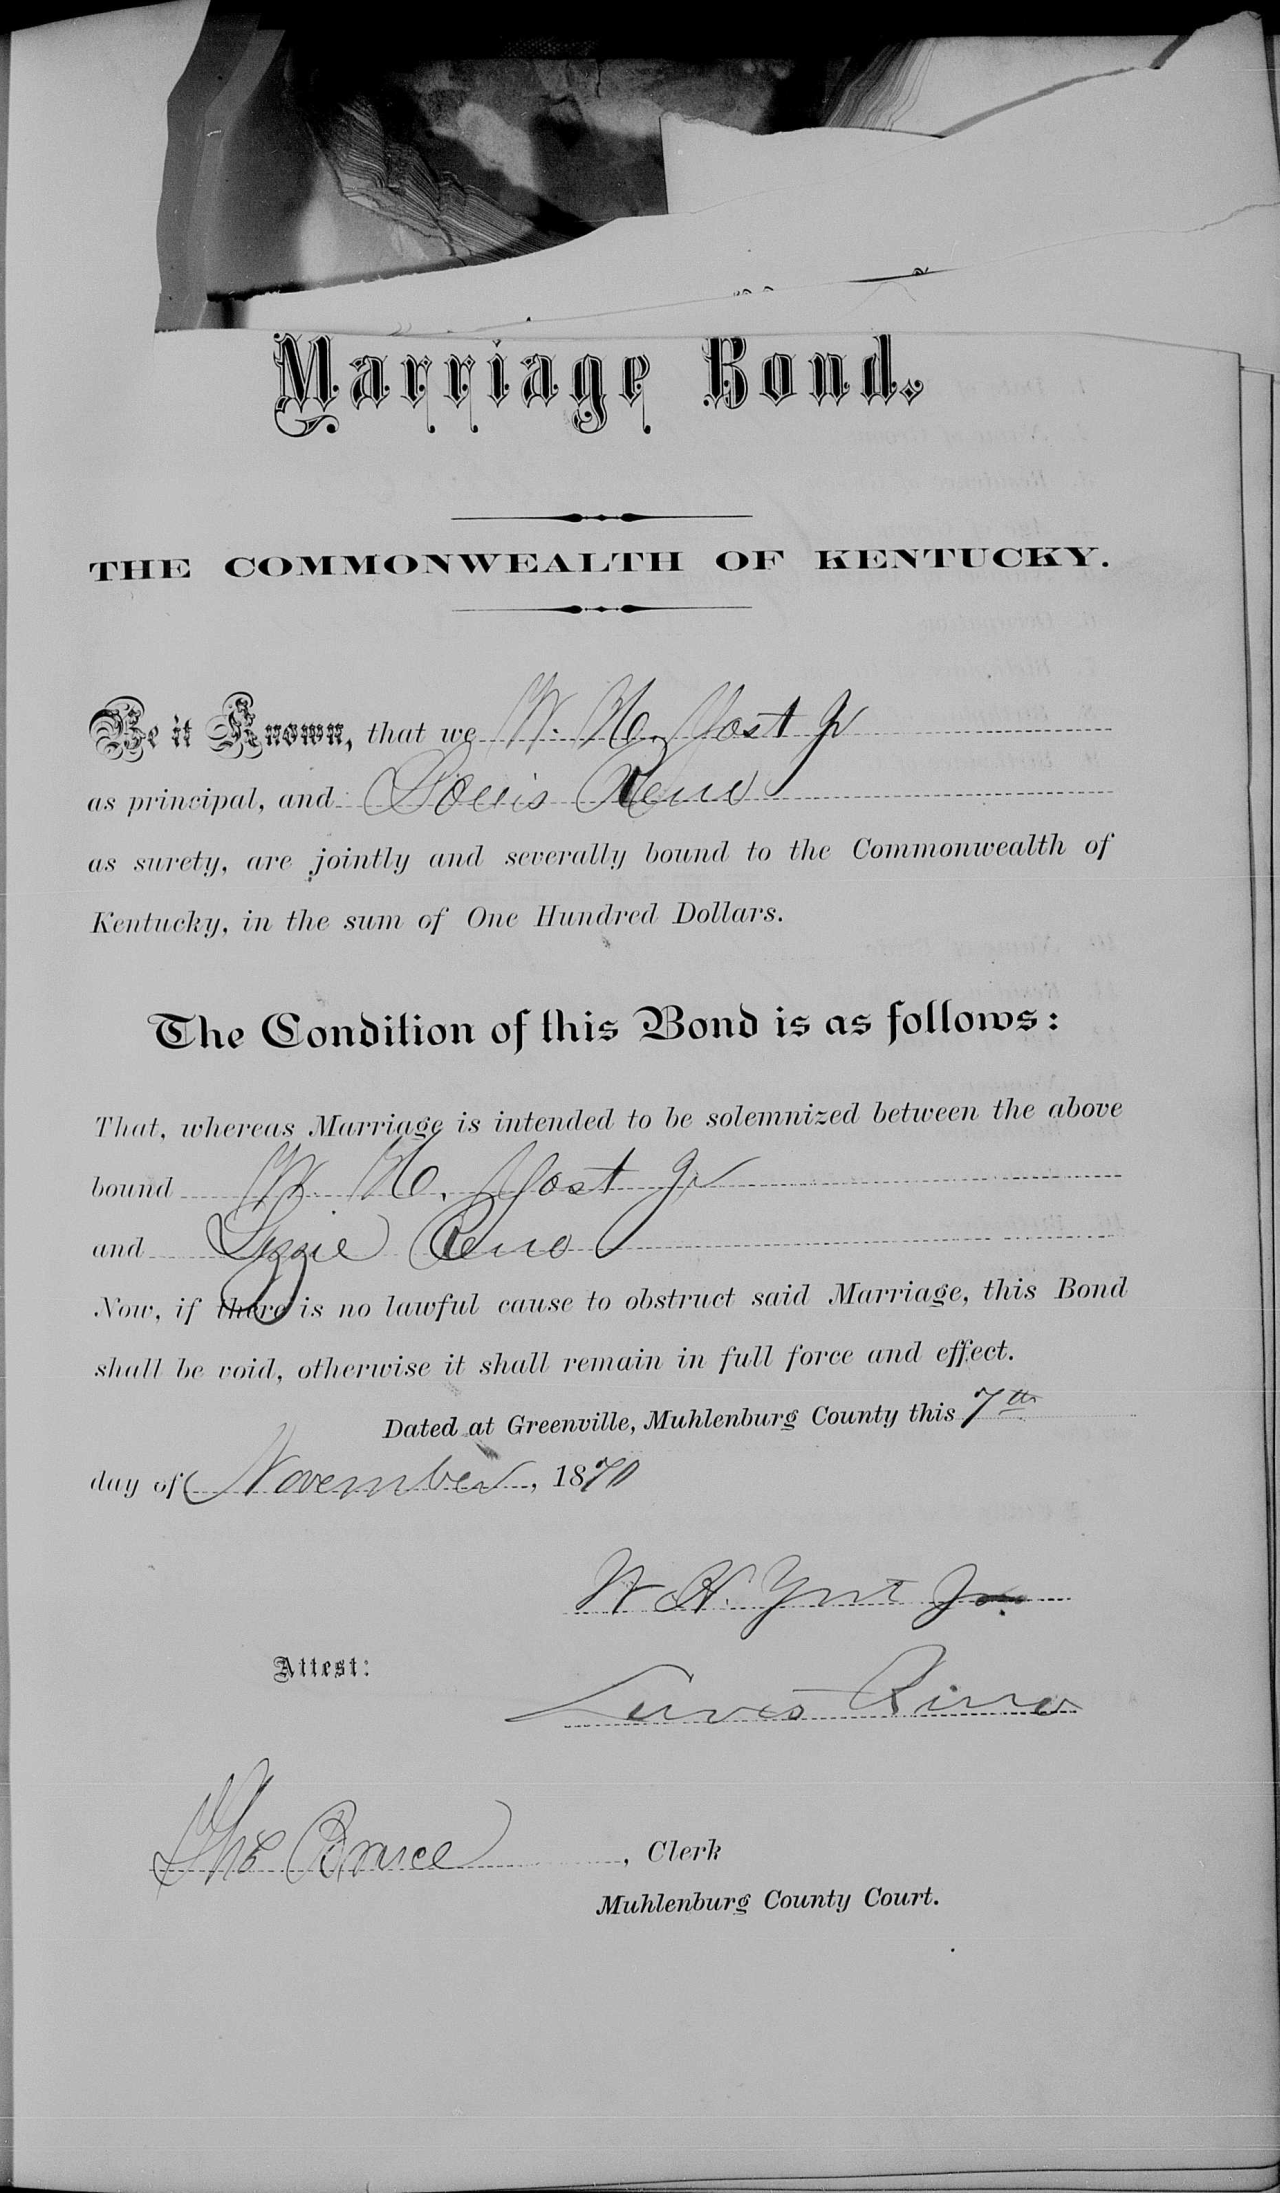 Marriage Bond.
THE COMMONWEALTH OF KENTUCKY.
Be it Known, that we W. H. Yost Jr
as principal, and Louis Reno
as surety, are jointly and severally bound to the Commonwealth of
Kentucky, in the sum of One Hundred Dollars.
The Condition of this Bond is as follows:
That, whereas Marriage is intended to be solemnized between the above
bound W. H. Yost Jr
and Lizzie Reno
Now, if there is no lawful cause to obstruct said Marriage, this Bond
shall be void, otherwise it shall remain in full force and effect.
Dated at Greenville, Muhlenburg County this 7th
day of November, 1870
W H. Yost Jr
Attest:
Lewis Reno
Tho Bruce, Clerk
Muhlenburg County Court.